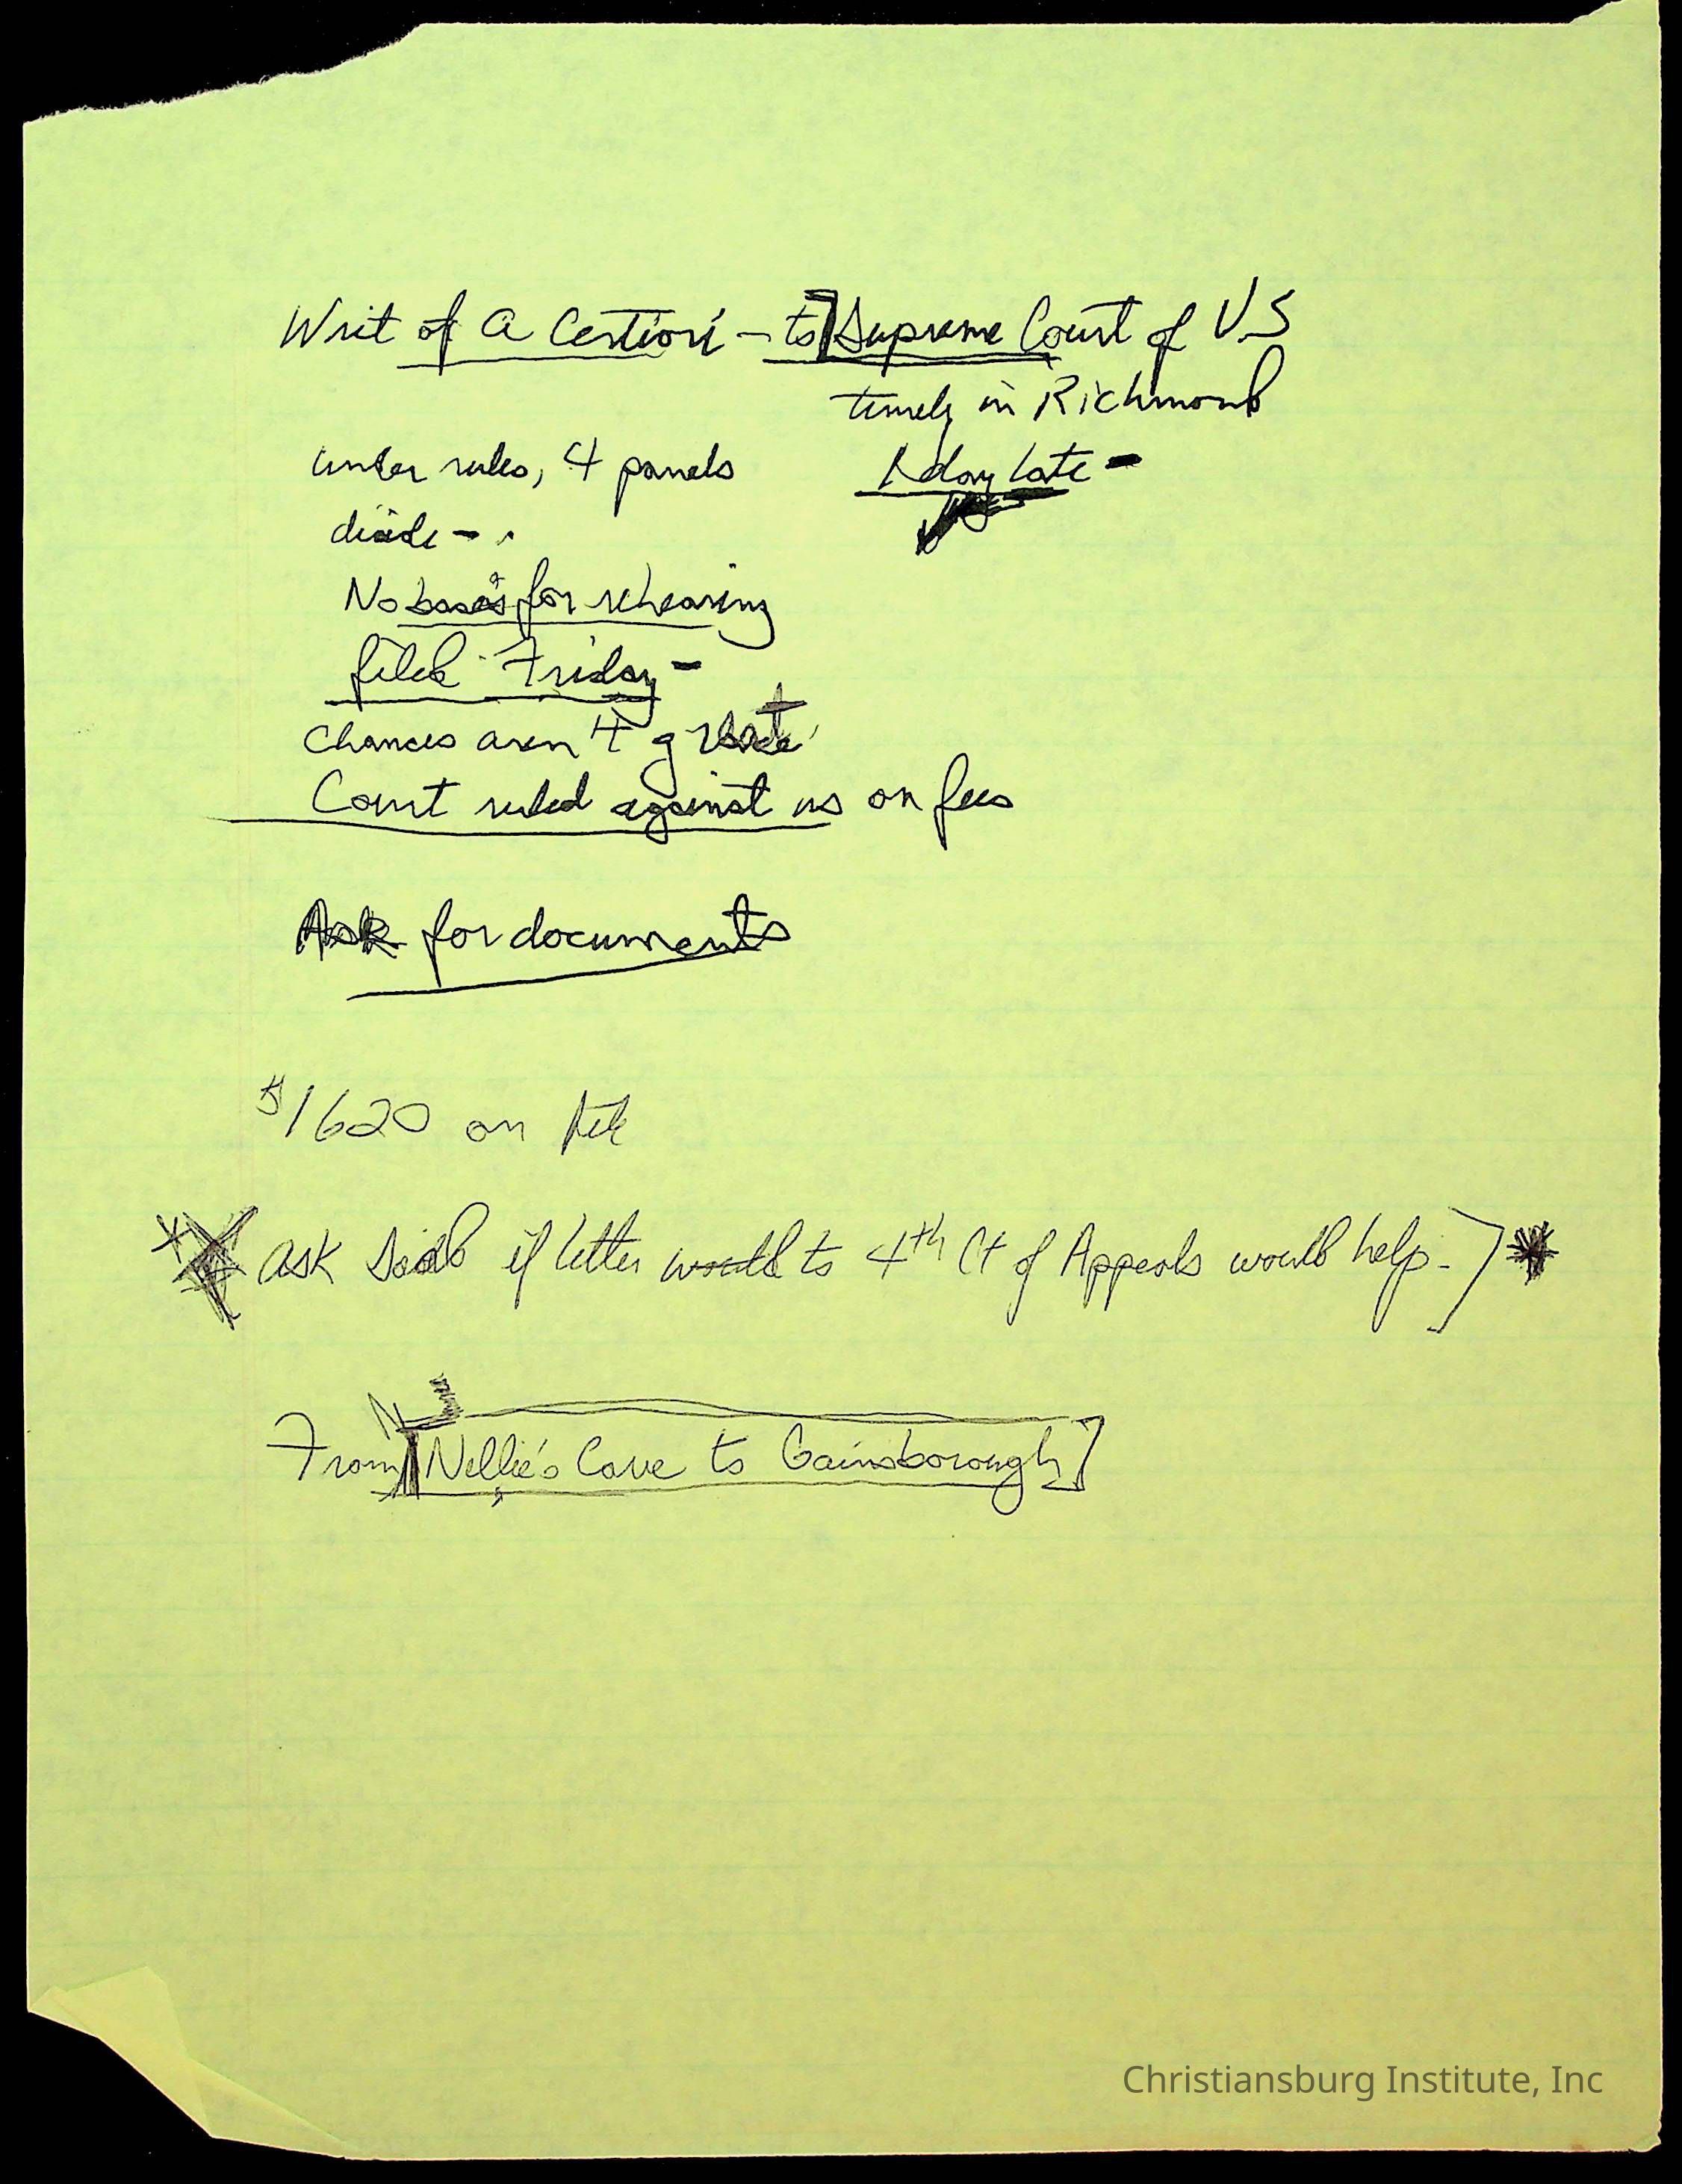 Writ of A Certiori - to Supreme Court of US
timely in Richmond
under rules, 4 panels
1 day late -
decide -
No basis for rehearing
filed Friday -
Chances aren't great
Court ruled against us on fees
Ask for documents
$1620 on
* ask if letter would to 4th Ct of Appeals would help - ] *
From [Nellie's Cave to Gainsborough]
Christiansburg Institute, Inc